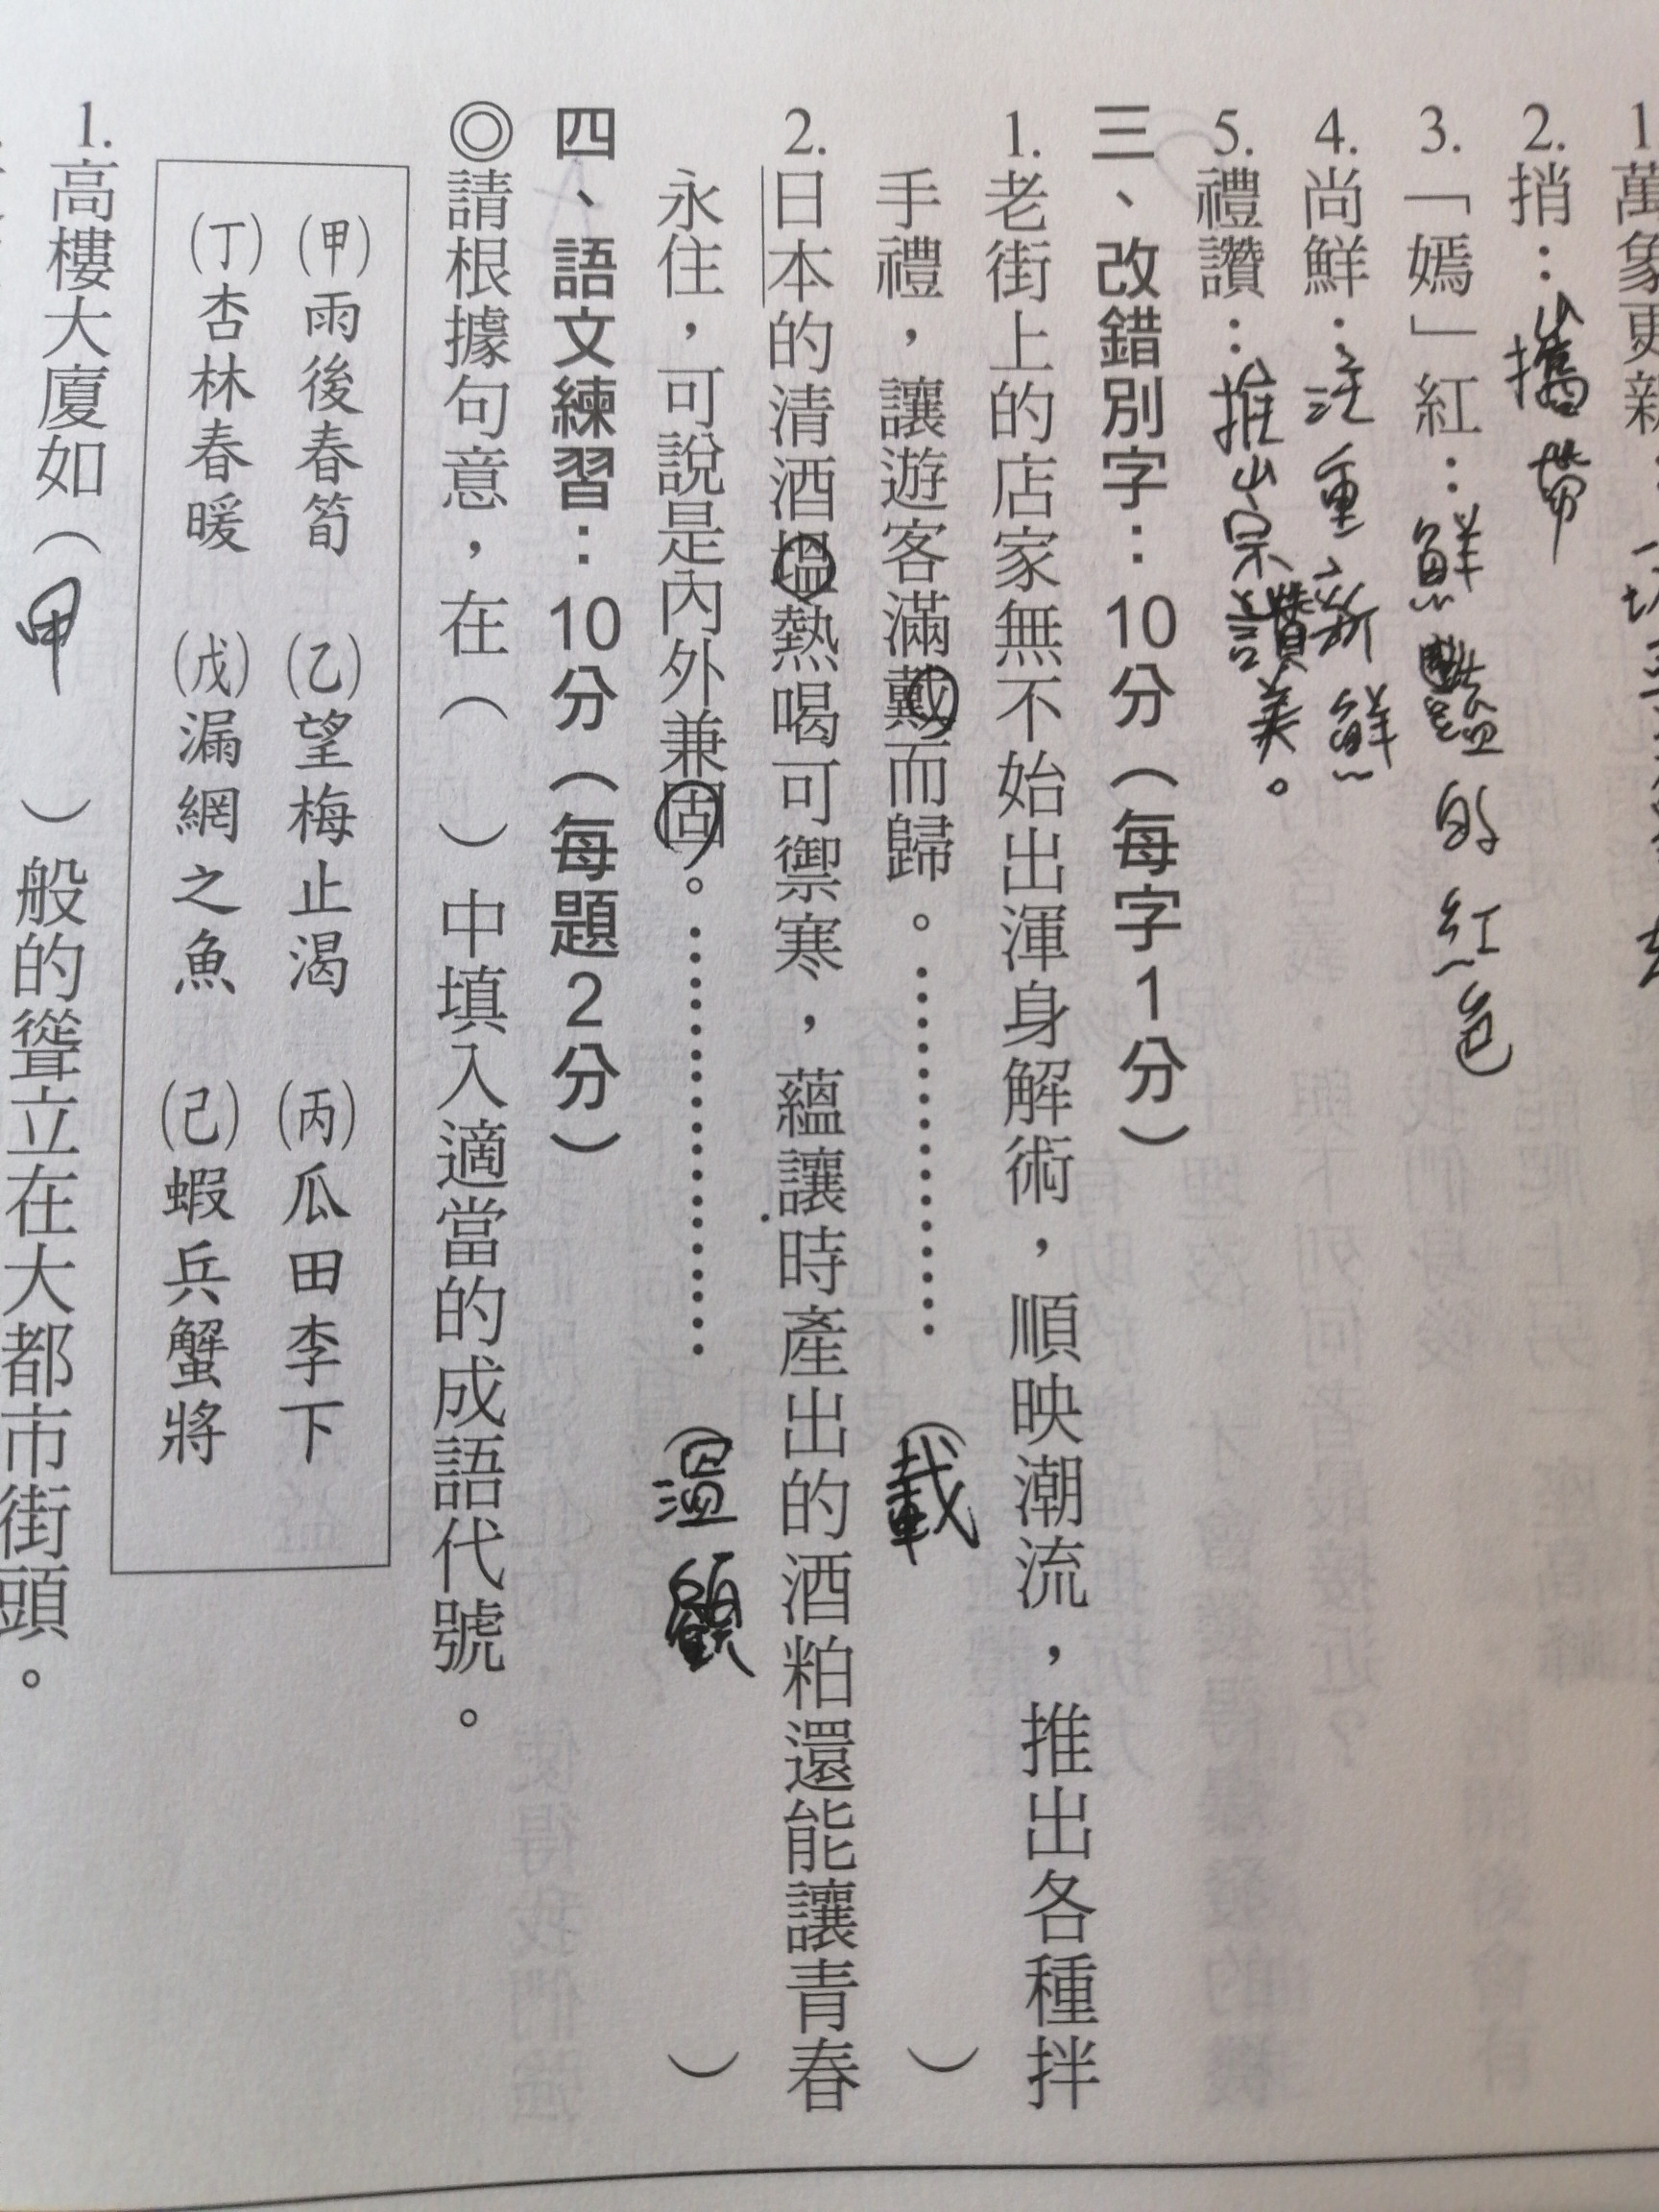 1萬象更新：
2.捎：攜帶
3.「嫣」紅：鮮豔的紅色
4.尚鮮：注重新鮮
5.禮讚：推崇讚美。
三、改錯別字：10分（每字1分）
1.老街上的店家無不始出渾身解術，順映潮流，推出各種拌
手禮，讓遊客滿戴而歸。………………（載）
2.日本的清酒塭熱喝可禦寒，蘊讓時產出的酒粕還能讓青春
永住，可說是內外兼固。………………（溫 顧）
四、語文練習：10分（每題2分）
◎請根據句意，在（ ）中填入適當的成語代號。
(甲)雨後春筍 (乙)望梅止渴 (丙)瓜田李下
(丁)杏林春暖 (戊)漏網之魚 (己)蝦兵蟹將
1.高樓大廈如（甲）般的聳立在大都市街頭。